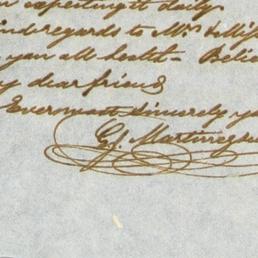 expecting to daily
kind regards to Mrs & Miss
you all health - Belie
my dear friend
Ever most sincerely yo